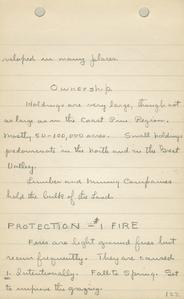 veloped in many places.
Ownership
Holdings are very large, though not
as large as in the Coast Pine Region.
Mostly 50-100,000 acres. Small holdings
predominate in the north and in the Great
Valley.
Lumber and Mining Companies
hold the bulk of the land.
PROTECTION - #1 FIRE
Fires are light ground fires but
recur frequently. They are caused
1. Intentionally. Fall to Spring. Set
to improve the grazing.
122